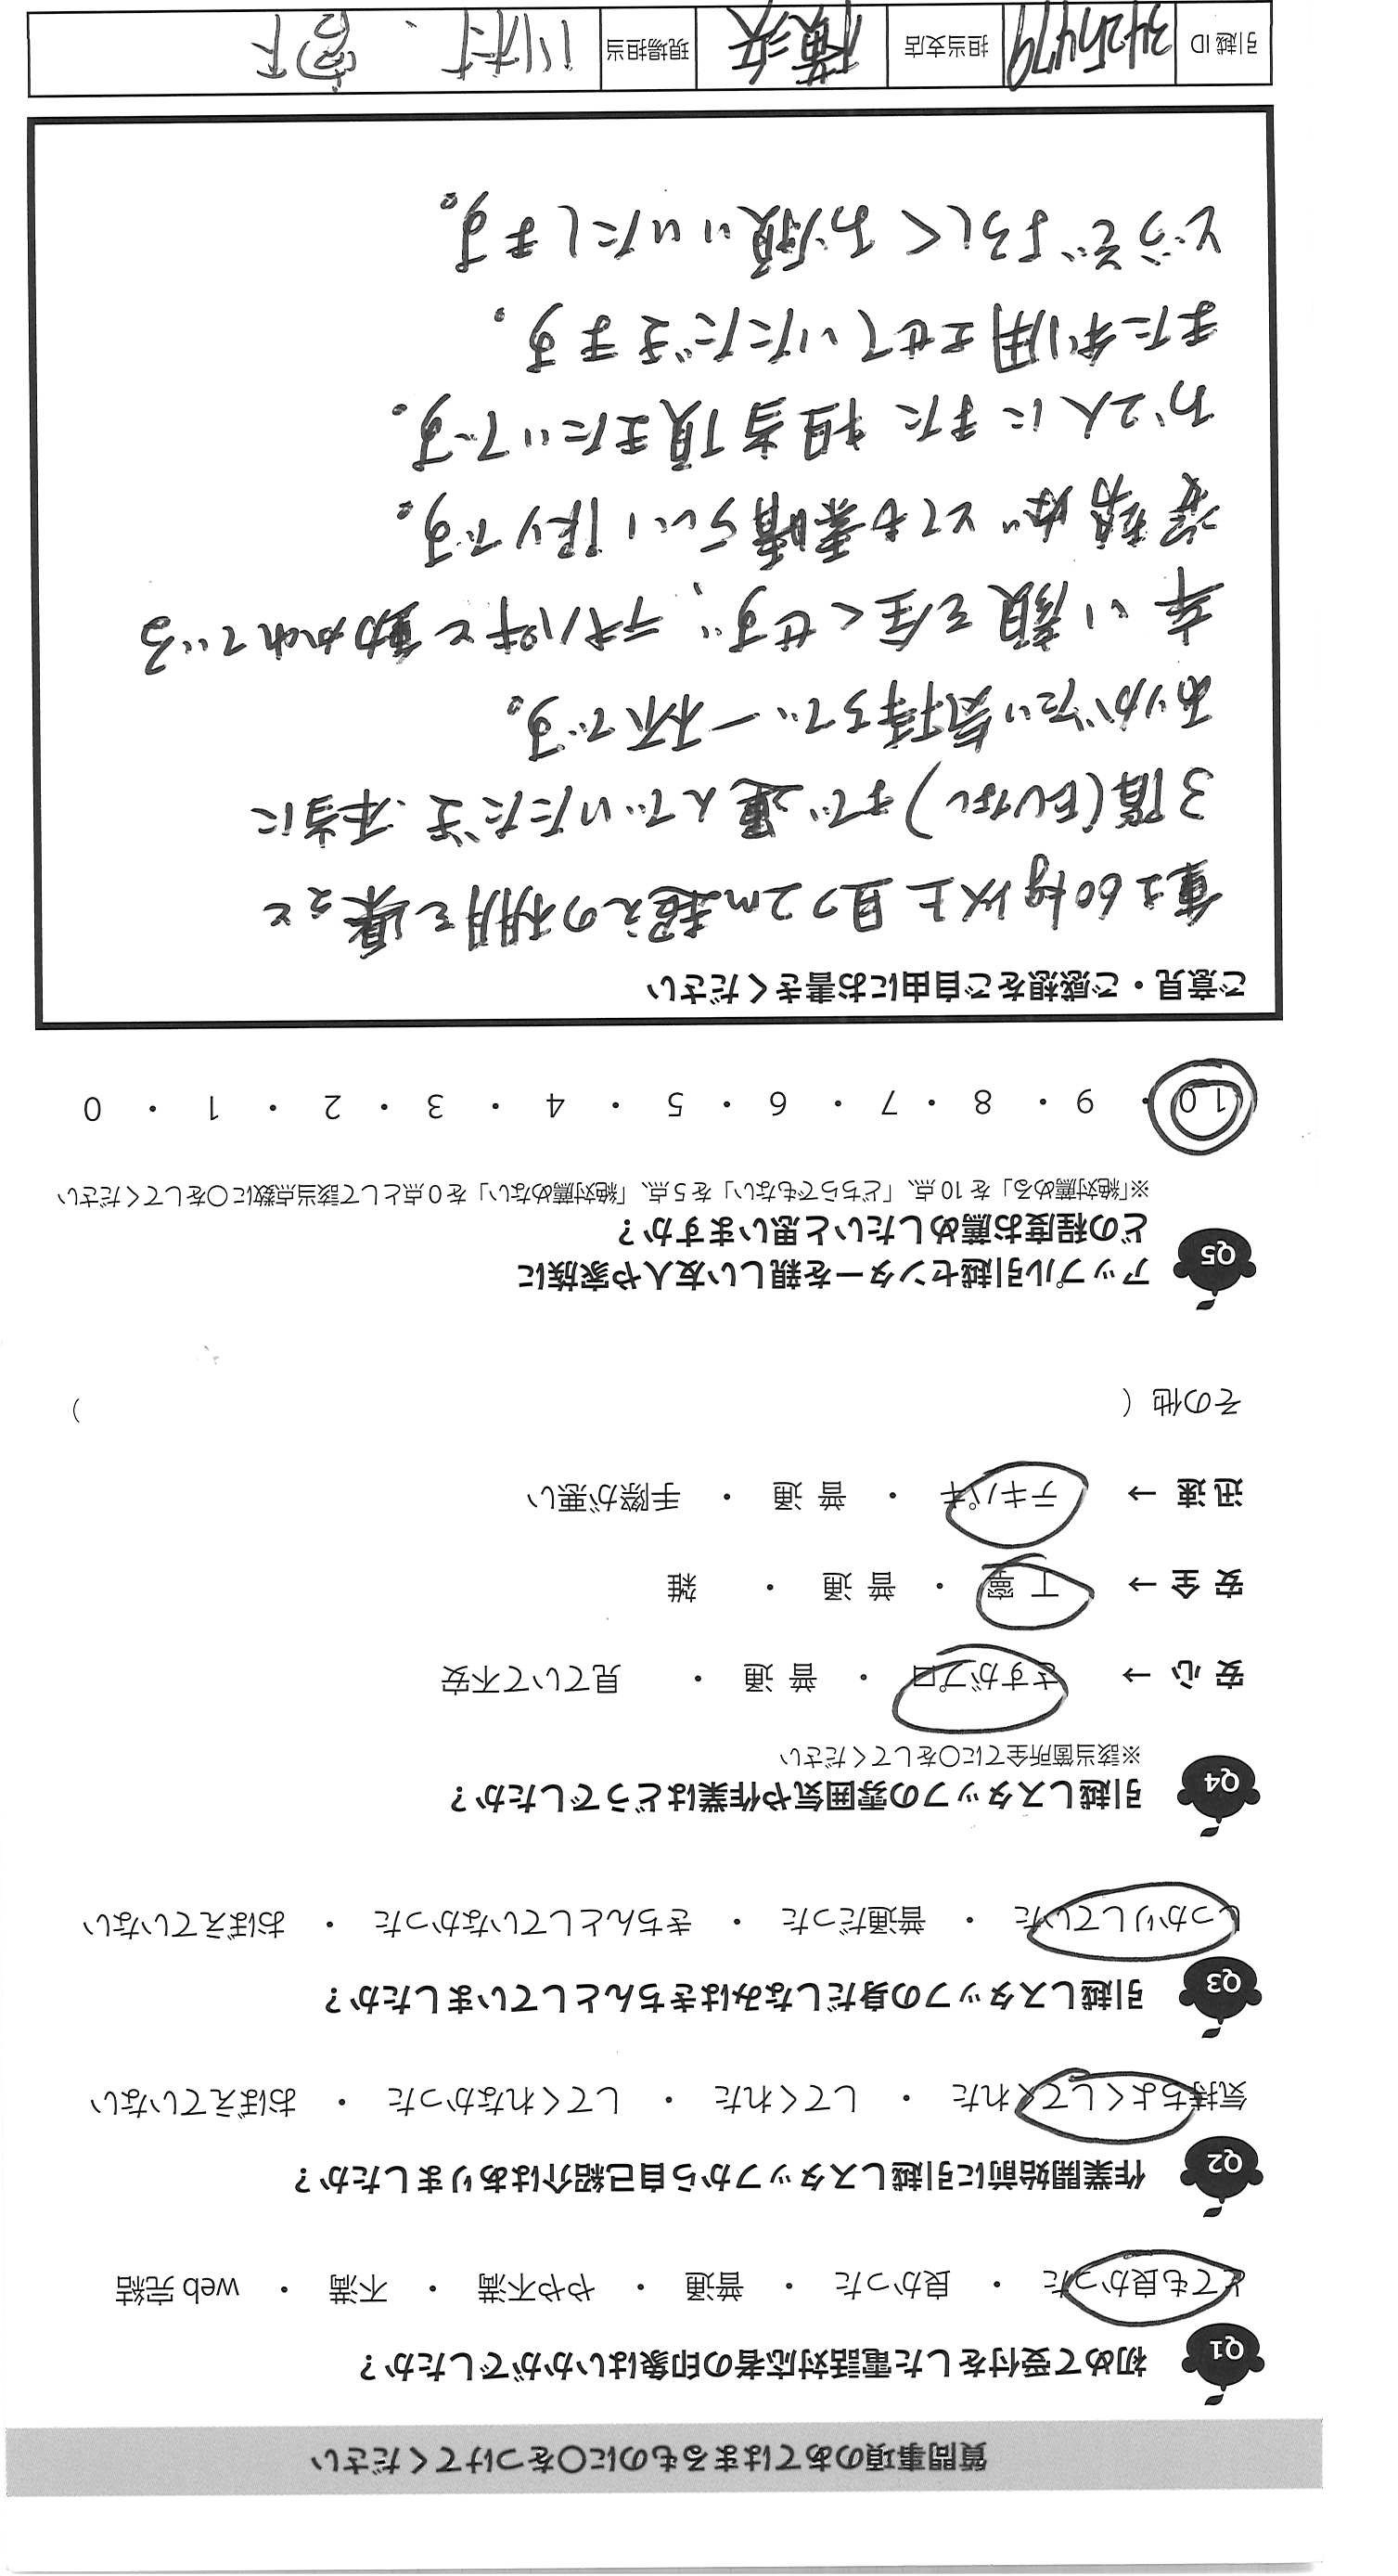 質問事項のあてはまるものに○をつけてください
Q1 初めて受付をした電話対応者の印象はいかがでしたか？
とても良かった ・ 良かった ・ 普通 ・ やや不満 ・ 不満 ・ web 完結
Q2 作業開始前に引越しスタッフから自己紹介はありましたか？
気持ちよくしてくれた ・ してくれた ・ してくれなかった ・ おぼえていない
Q3 引越しスタッフの身だしなみはきちんとしていましたか？
しっかりしていた ・ 普通だった ・ きちんとしていなかった ・ おぼえていない
Q4 引越しスタッフの雰囲気や作業はどうでしたか？
※該当箇所全てに○をしてください
安 心 → さすがプロ ・ 普 通 ・ 見ていて不安
安 全 → 丁 寧 ・ 普 通 ・ 雑
迅 速 → テキパキ ・ 普 通 ・ 手際が悪い
その他（ ）
Q5 アップル引越センターを親しい友人や家族に
どの程度お薦めしたいと思いますか？
※「絶対薦める」を 10 点、「どちらでもない」を 5 点、「絶対薦めない」を 0 点として該当点数に○をしてください
10 ・ 9 ・ 8 ・ 7 ・ 6 ・ 5 ・ 4 ・ 3 ・ 2 ・ 1 ・ 0
ご意見・ご感想をご自由にお書きください
重さ60kg以上且つ2m超えの棚を楽々と
3階(EVなし)まで運んでいただき、本当に
ありがたい気持ちで一杯です。
辛い顔を全くせず、テキパキと動かれている
姿勢がとても素晴らしい限りです。
お2人にまた担当頂きたいです。
また利用させていただきます。
どうぞよろしくお願いいたします。
引越 ID 3425479 担当支店 横浜 現場担当 川村、宮下